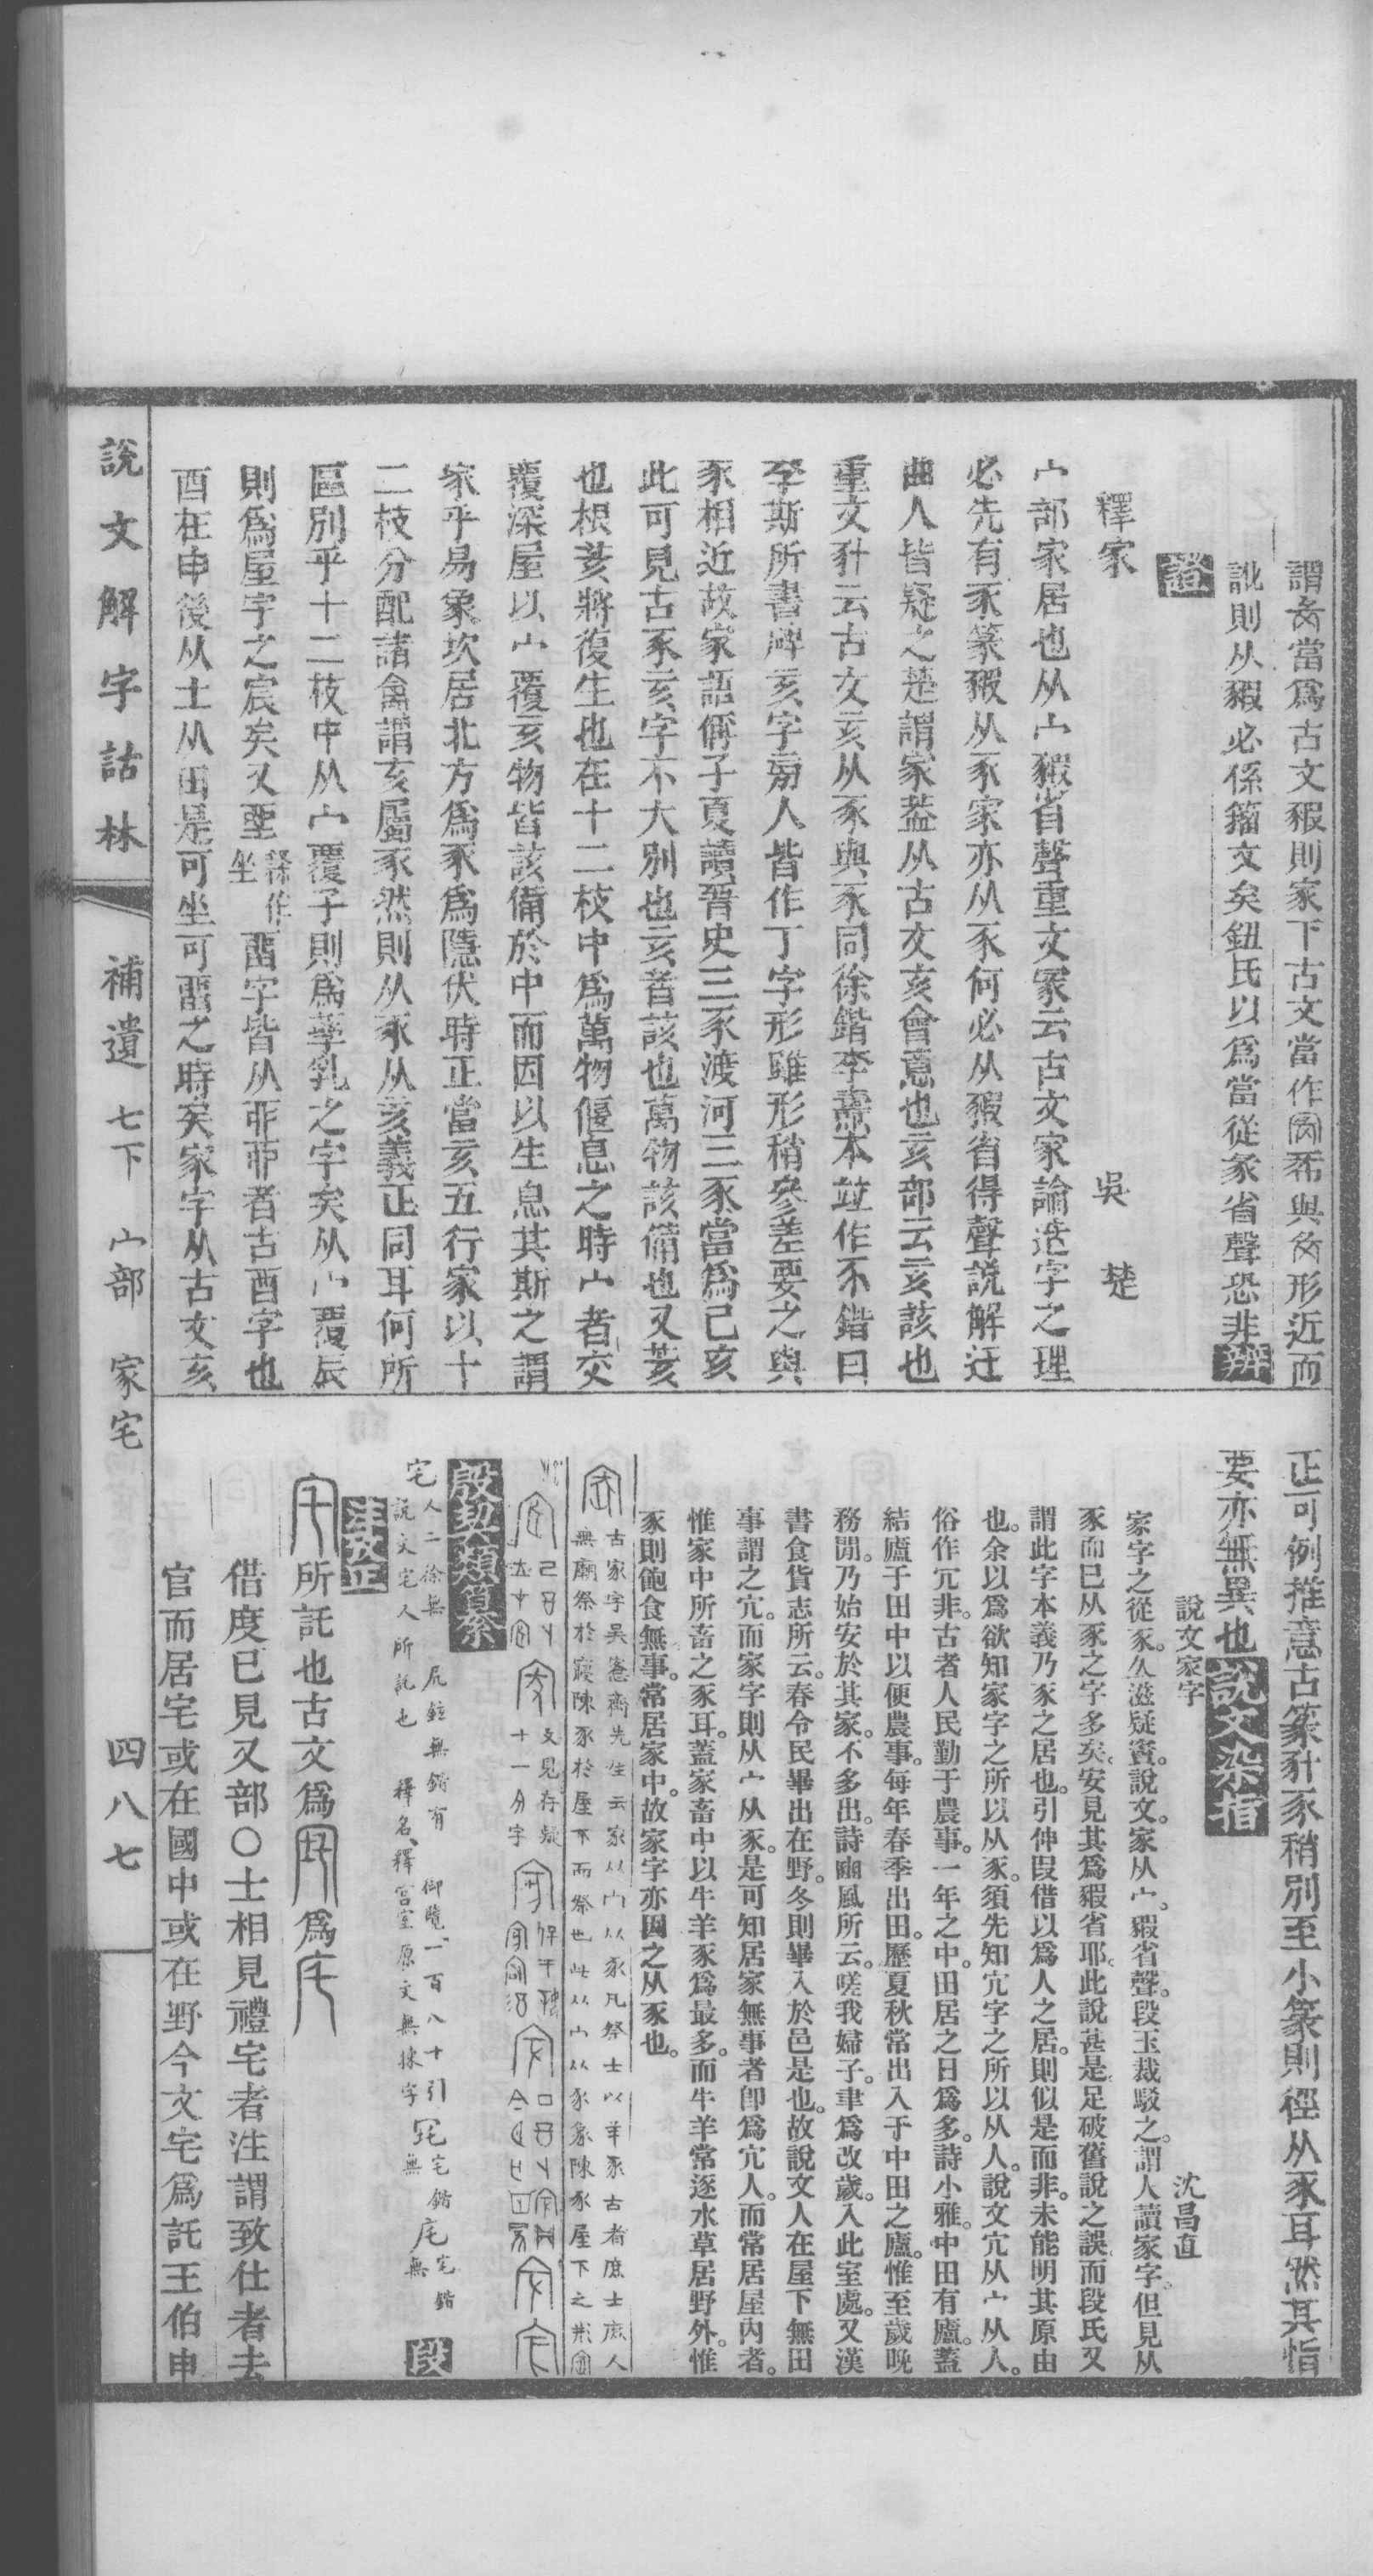 謂㒸當爲古文豭則家下古文當作𠖔㒸與㒸形近而
訛則从豭必係籀文矣鈕氏以爲當從豙省聲恐非
證
釋家 吳楚
宀部家居也从宀豭省聲重文𠖔云古文家論造字之理
必先有豕篆豭从豕家亦从豕何必从豭省得聲說解迂
曲人皆疑之楚謂家葢从古文亥會意也亥部云亥該也
重文𠀅云古文亥从豕與豕同徐鍇李燾本竝作不鍇曰
李斯所書碑亥字旁人皆作丁字形雖形稍參差要之與
豕相近故家語偁子夏讀晉史三豕渡河三豕當爲己亥
此可見古豕亥字不大別也亥者該也萬物該備也又荄
也根荄將復生也在十二枝中爲萬物偃息之時宀者交
覆深屋以宀覆亥物皆該備於中而因以生息其斯之謂
家乎易象坎居北方爲豕爲隱伏時正當亥五行家以十
二枝分配諸禽謂亥屬豕然則从豕从亥義正同耳何所
區別乎十二枝中从宀覆子則爲孳乳之字矣从宀覆辰
則爲屋宇之宸矣又聖 隸作坐 畱字皆从丣丣者古酉字也
酉在申後从土从田是可坐可畱之時矣家字从古文亥
正可例推意古篆𠀅豕稍別至小篆則徑从豕耳然其恉
要亦無異也
說文家字 沈昌直
家字之從豕。久滋疑竇。說文。家从宀。豭省聲。段玉裁駁之。謂人讀家字。但見从
豕而已从豕之字多矣。安見其爲豭省耶。此說甚是。足破舊說之誤。而段氏又
謂此字本義乃豕之居也。引伸叚借以爲人之居。則似是而非。未能明其原由
也。余以爲欲知家字之所以从豕。須先知宂字之所以从人。說文宂从宀从人。
俗作冗非。古者人民勤于農事。一年之中。田居之日爲多。詩小雅。中田有廬。蓋
結廬于田中以便農事。每年春季出田。歷夏秋常出入于中田之廬。惟至歲晚
務閒。乃始安於其家。不多出。詩豳風所云。嗟我婦子。聿爲改歲。入此室處。又漢
書食貨志所云。春令民畢出在野。冬則畢入於邑是也。故說文人在屋下無田
事謂之宂。而家字則从宀从豕。是可知居家無事者卽爲宂人。而常居屋內者。
惟家中所畜之豕耳。蓋家畜中以牛羊豕爲最多。而牛羊常逐水草居野外。惟
豕則飽食無事。常居家中。故家字亦因之从豕也。
古家字吳愙齋先生云家从宀从豕凡祭士以羊豕古者庶士庶人
無廟祭於寢陳豕於屋下而祭也此从宀从豕象陳豕屋下之形
殷契類纂
宅 說文宅人所託也
釋名釋宮室原文無揀字
御覽一百八十引
段
注文正
所託也古文爲㡯爲𡧪
借度已見又部〇士相見禮宅者注謂致仕者去
官而居宅或在國中或在野今文宅爲託王伯申
說文解字詁林 補遺 七下 宀部 家宅 四八七